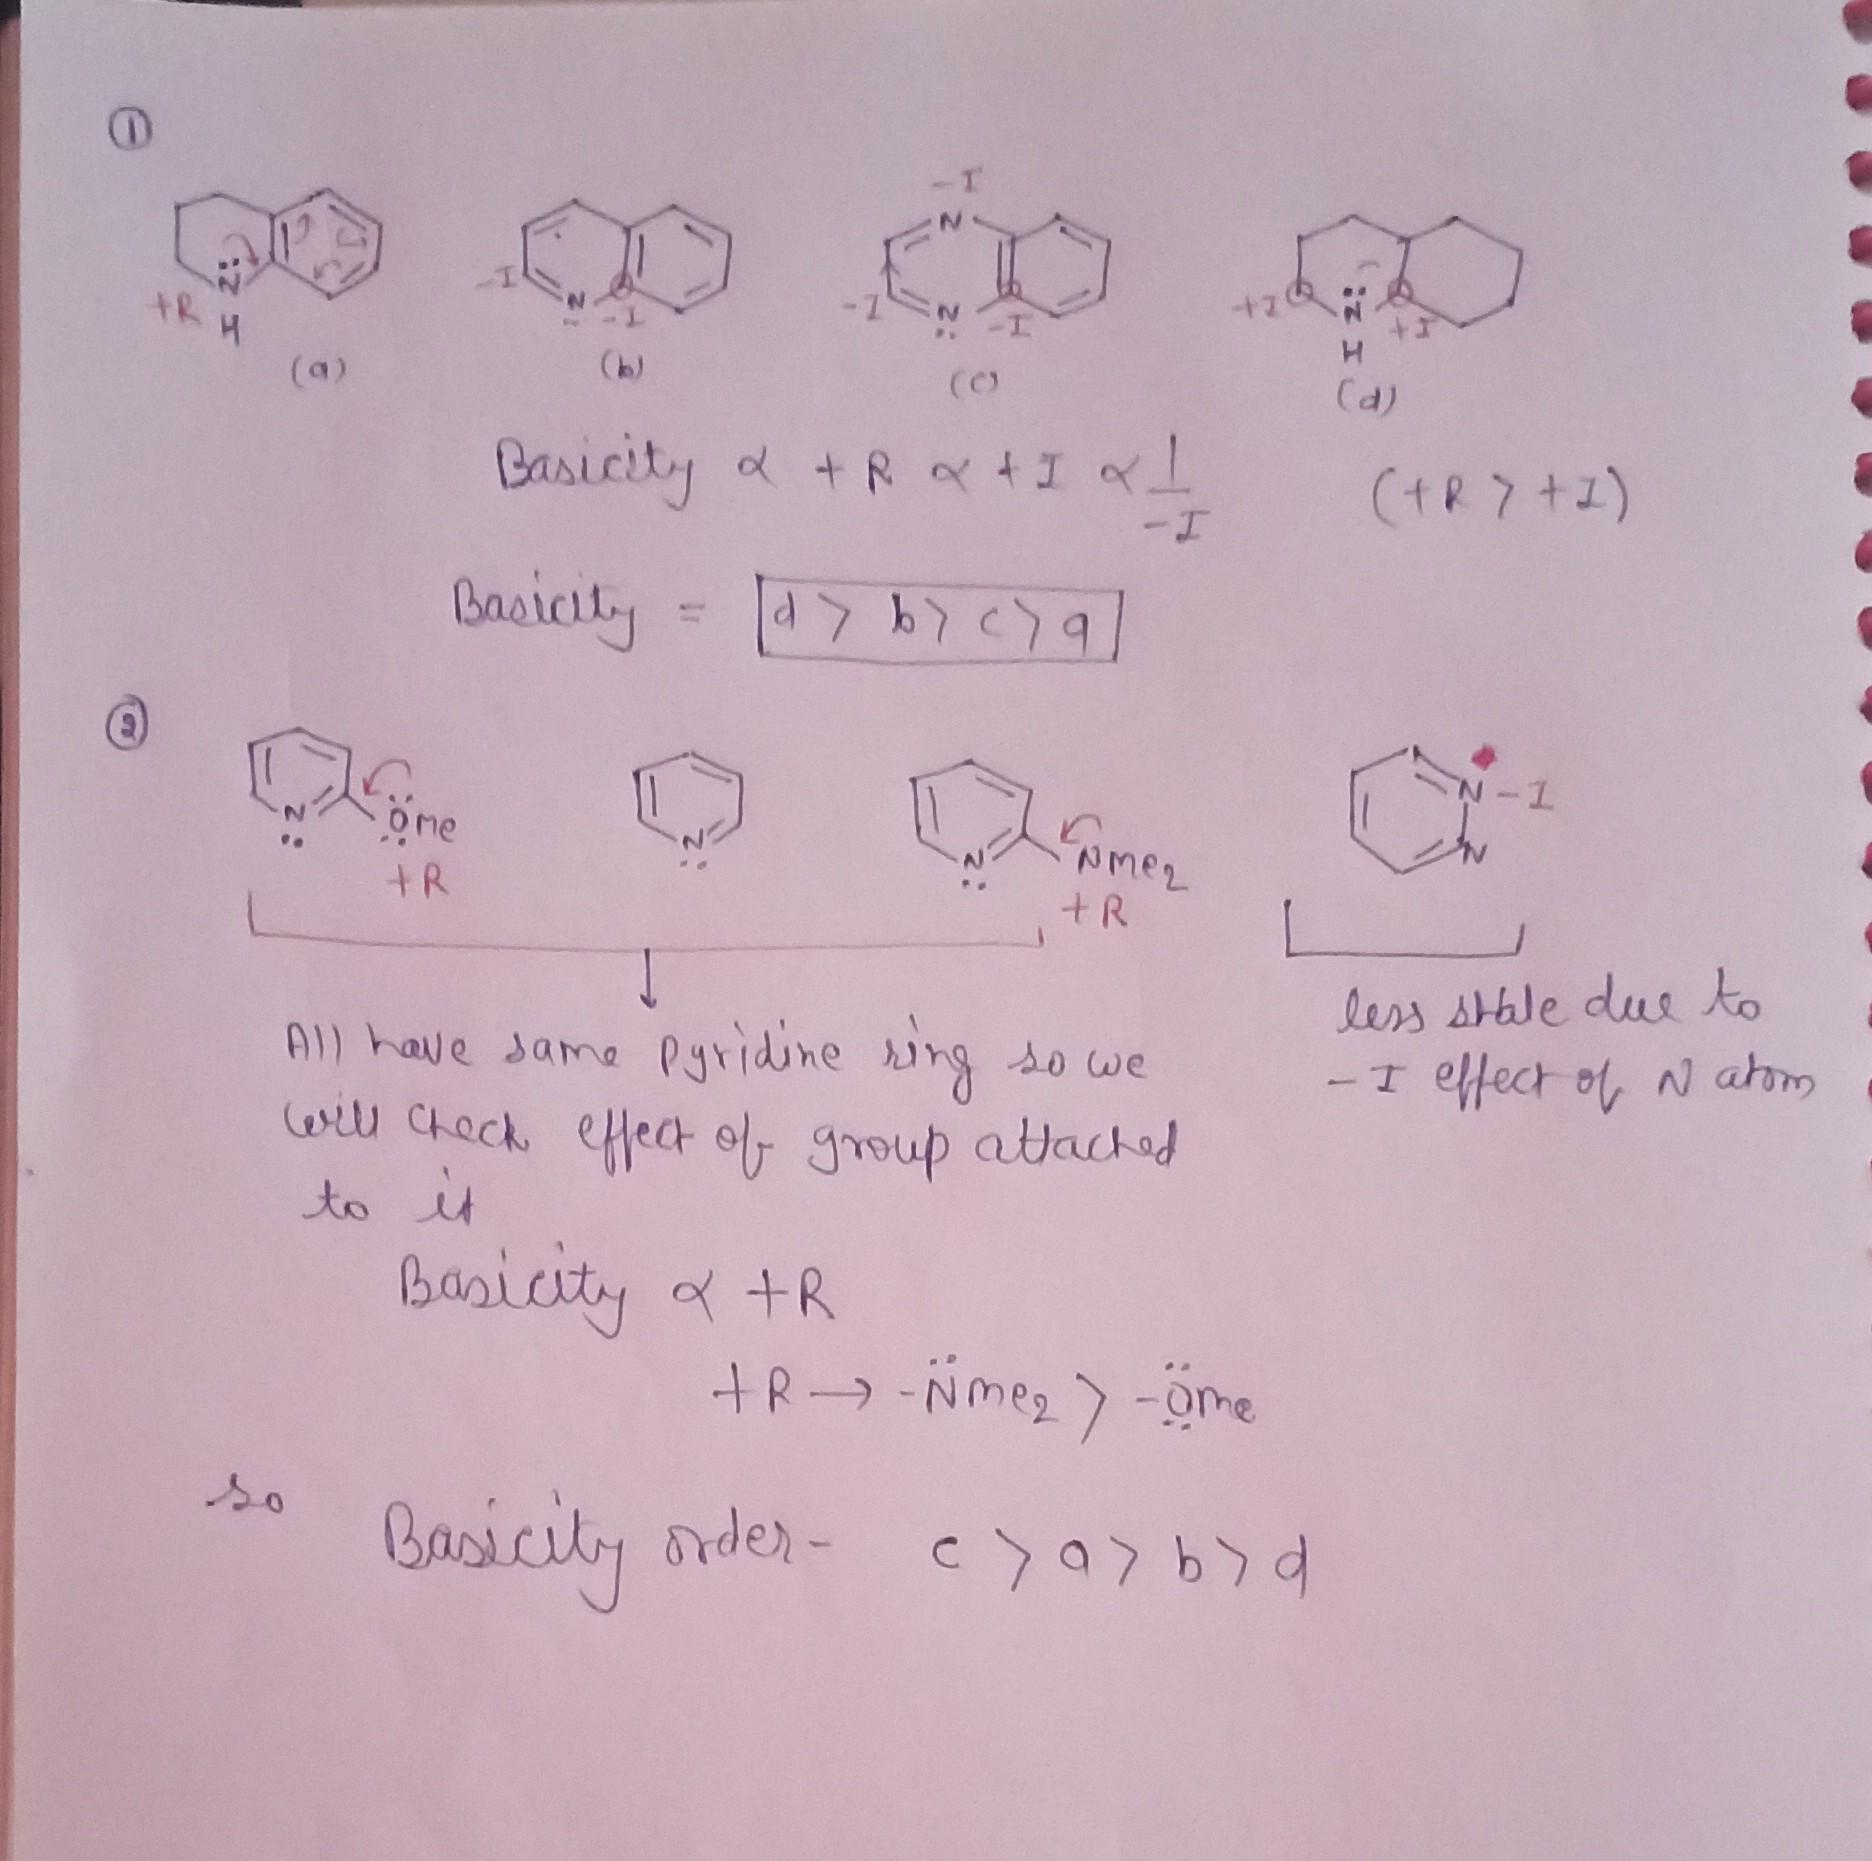 ①
+R N H -I N -I -I N -I N -I +I N H +I
(a) (b) (c) (d)
Basicity α +R α +I α 1/-I (+R > +I)
Basicity = d > b > c > a
②
N OMe +R N N NMe2 +R N -I N
All have same pyridine ring so we
will check effect of group attached
to it
less stable due to
-I effect of N atom
Basicity α +R
+R → -NMe2 > -OMe
so Basicity order- c > a > b > d